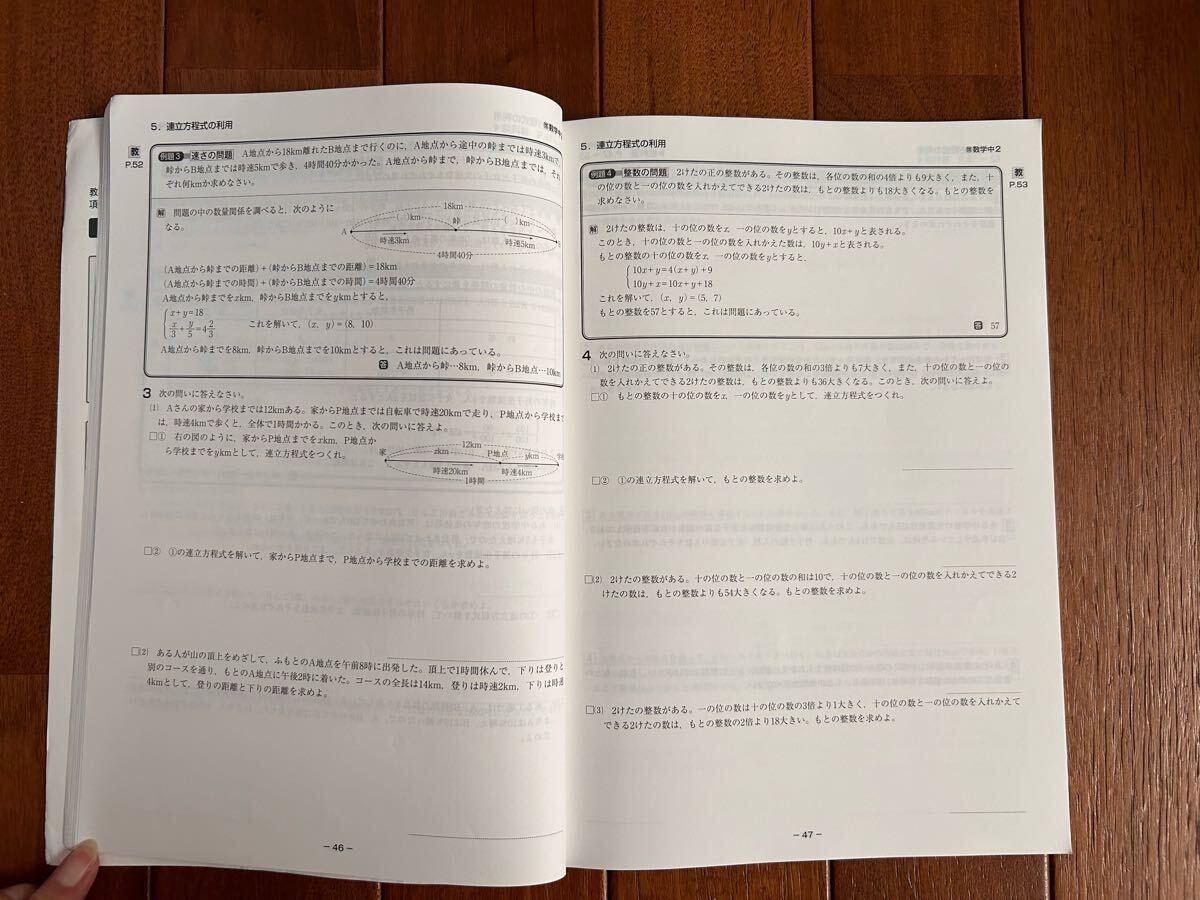 5．連立方程式の利用
㊥数学中
教
P.52
例題3 速さの問題 A地点から18km離れたB地点まで行くのに，A地点から途中の峠までは時速3kmで，
峠からB地点までは時速5kmで歩き，4時間40分かかった。A地点から峠まで，峠からB地点までは，それ
ぞれ何km求めなさい。
解 問題の中の数量関係を調べると，次のように
なる。
18km
( )km
峠
( )km
A
時速3km
時速5km
4時間40分
(A地点から峠までの距離)＋(峠からB地点までの距離)＝18km
(A地点から峠までの時間)＋(峠からB地点までの時間)＝4時間40分
A地点から峠までをxkm，峠からB地点までをykmとすると，
x＋y＝18
x/3＋y/5＝4 2/3
これを解いて，(x，y)＝(8，10)
A地点から峠までを8km，峠からB地点までを10kmとすると，これは問題にあっている。
答 A地点から峠…8km，峠からB地点…10km
3 次の問いに答えなさい。
(1) Aさんの家から学校までは12kmある。家からP地点までは自転車で時速20kmで走り，P地点から学校まで
は，時速4kmで歩くと，全体で1時間かかる。このとき，次の問いに答えよ。
□① 右の図のように，家からP地点までをxkm，P地点か
ら学校までをykmとして，連立方程式をつくれ。
12km
家
xkm
P地点
ykm
時速20km
時速4km
1時間
□② ①の連立方程式を解いて，家からP地点まで，P地点から学校までの距離を求めよ。
□(2) ある人が山の頂上をめざして，ふもとのA地点を午前8時に出発した。頂上で1時間休んで，下りは登りと
別のコースを通り，もとのA地点に午後2時に着いた。コースの全長は14km，登りは時速2km，下りは時速
4kmとして，登りの距離と下りの距離を求めよ。
－46－
5．連立方程式の利用
㊥数学中2
教
P.53
例題4 整数の問題 2けたの正の整数がある。その整数は，各位の数の和の4倍よりも9大きく，また，十
の位の数と一の位の数を入れかえてできる2けたの数は，もとの整数よりも18大きくなる。もとの整数を
求めなさい。
解 2けたの整数は，十の位の数をx，一の位の数をyとすると，10x＋yと表される。
このとき，十の位の数と一の位の数を入れかえた数は，10y＋xと表される。
もとの整数の十の位の数をx，一の位の数をyとすると，
10x＋y＝4(x＋y)＋9
10y＋x＝10x＋y＋18
これを解いて，(x，y)＝(5，7)
もとの整数を57とすると，これは問題にあっている。
答 57
4 次の問いに答えなさい。
(1) 2けたの正の整数がある。その整数は，各位の数の和の3倍よりも7大きく，また，十の位の数と一の位の
数を入れかえてできる2けたの整数は，もとの整数よりも36大きくなる。このとき，次の問いに答えよ。
□① もとの整数の十の位の数をx，一の位の数をyとして，連立方程式をつくれ。
□② ①の連立方程式を解いて，もとの整数を求めよ。
□(2) 2けたの整数がある。十の位の数と一の位の数の和は10で，十の位の数と一の位の数を入れかえてできる2
けたの数は，もとの整数よりも54大きくなる。もとの整数を求めよ。
□(3) 2けたの整数がある。一の位の数は十の位の数の3倍より1大きく，十の位の数と一の位の数を入れかえて
できる2けたの数は，もとの整数の2倍より18大きい。もとの整数を求めよ。
－47－